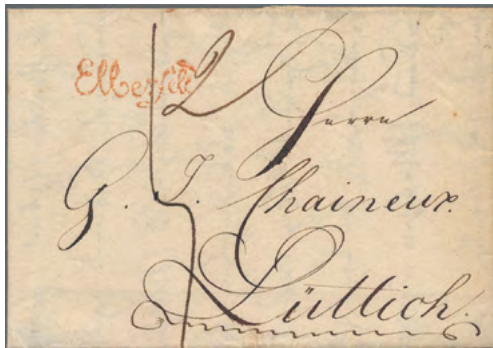 Elberfeld
Herrn
G. J. Chaineux.
Lüttich.